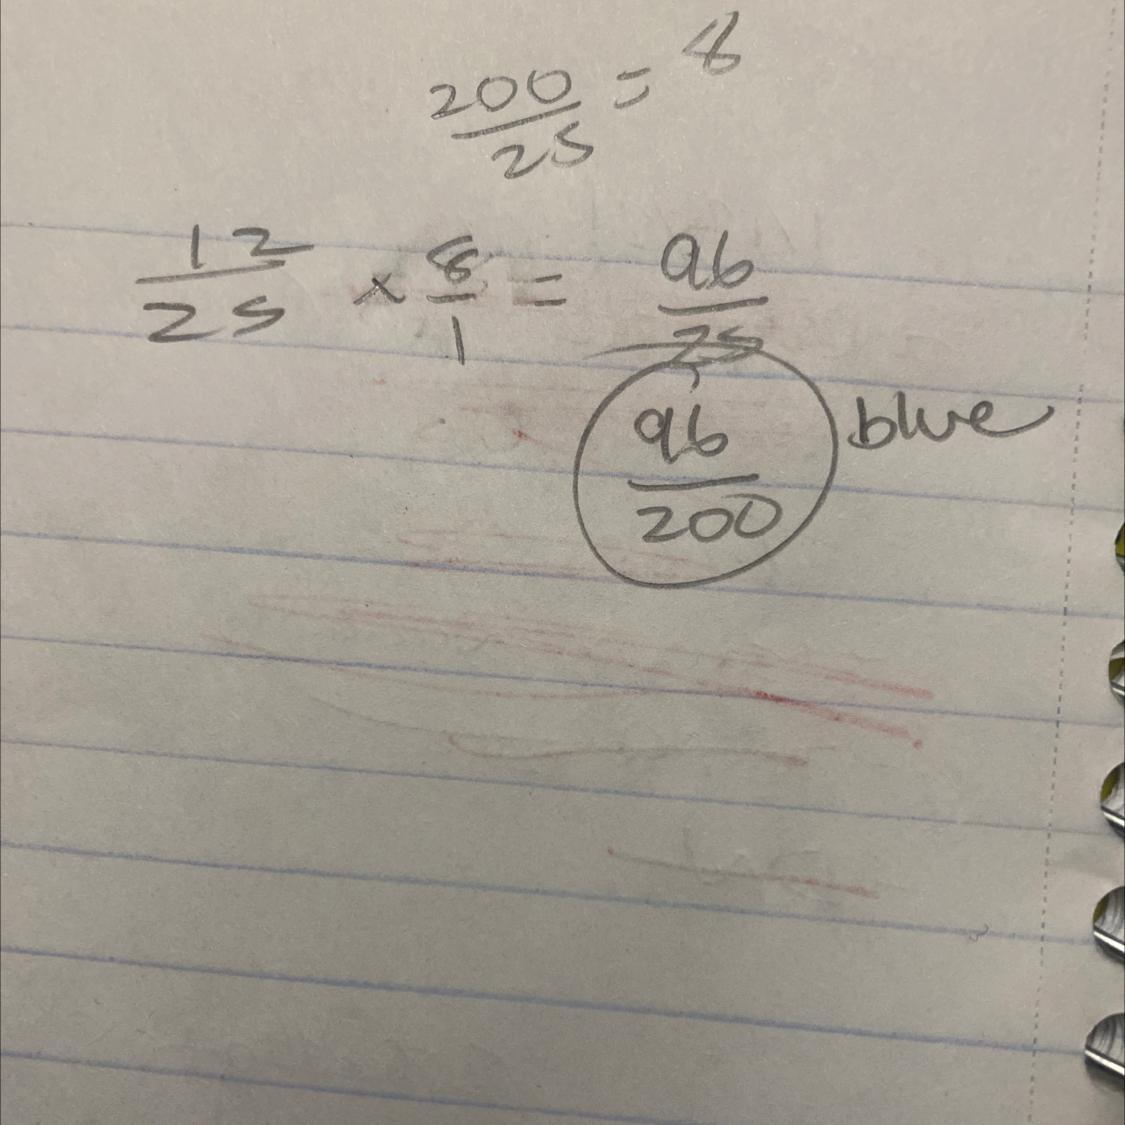 200/25 = 8
12/25 × 8/1 = 96/25
96/200 blue